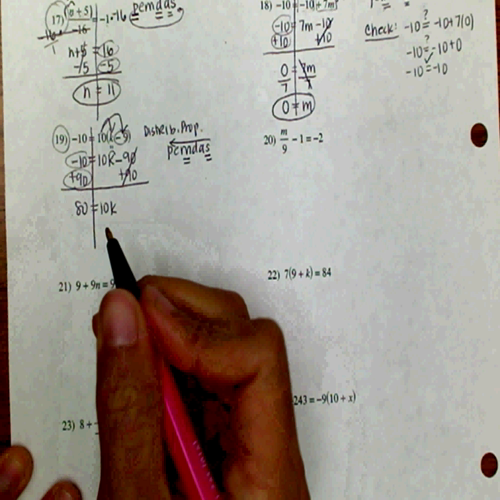 17) (n+5) = -1·-16 pemdas
-16
1
n+5 = 16
-5 -5
n = 11
18) -10 = -10+7m
-10 = 7m-10
+10 +10
0 = 7m
7 7
0 = m
Check: -10 ≟ -10+7(0)
-10 ≟ -10+0
-10 = -10
19) -10 = 10(k-9) Distrib. Prop.
-10 = 10k-90 pemdas
+90 +90
80 = 10k
20) m/9 - 1 = -2
21) 9 + 9n = 9
22) 7(9 + k) = 84
23) 8 +
243 = -9(10 + x)